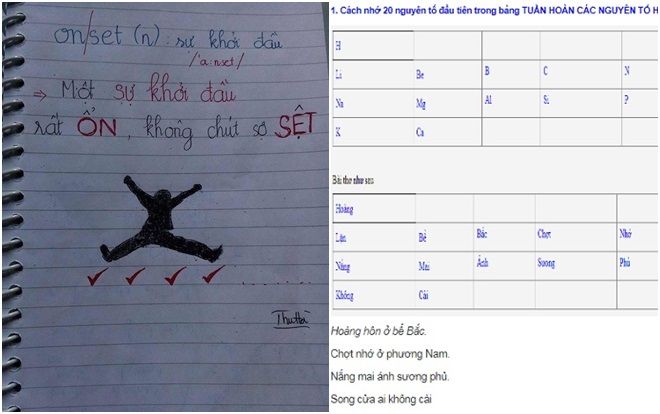 on/set (n) : sự khởi đầu
/'a:nset/
⇒ Một sự khởi đầu
rất ỔN, không chút sợ SỆT
ThuHà
1. Cách nhớ 20 nguyên tố đầu tiên trong bảng TUẦN HOÀN CÁC NGUYÊN TỐ H
H
Li Be B C N
Na Mg Al Si P
K Ca
Bài thơ như sau
Hoàng
Lặn Bể Bắc Chợt Nhớ
Nắng Mai Ánh Sương Phủ
Không Cài
Hoàng hôn ở bể Bắc.
Chợt nhớ ở phương Nam.
Nắng mai ánh sương phủ.
Song cửa ai không cài